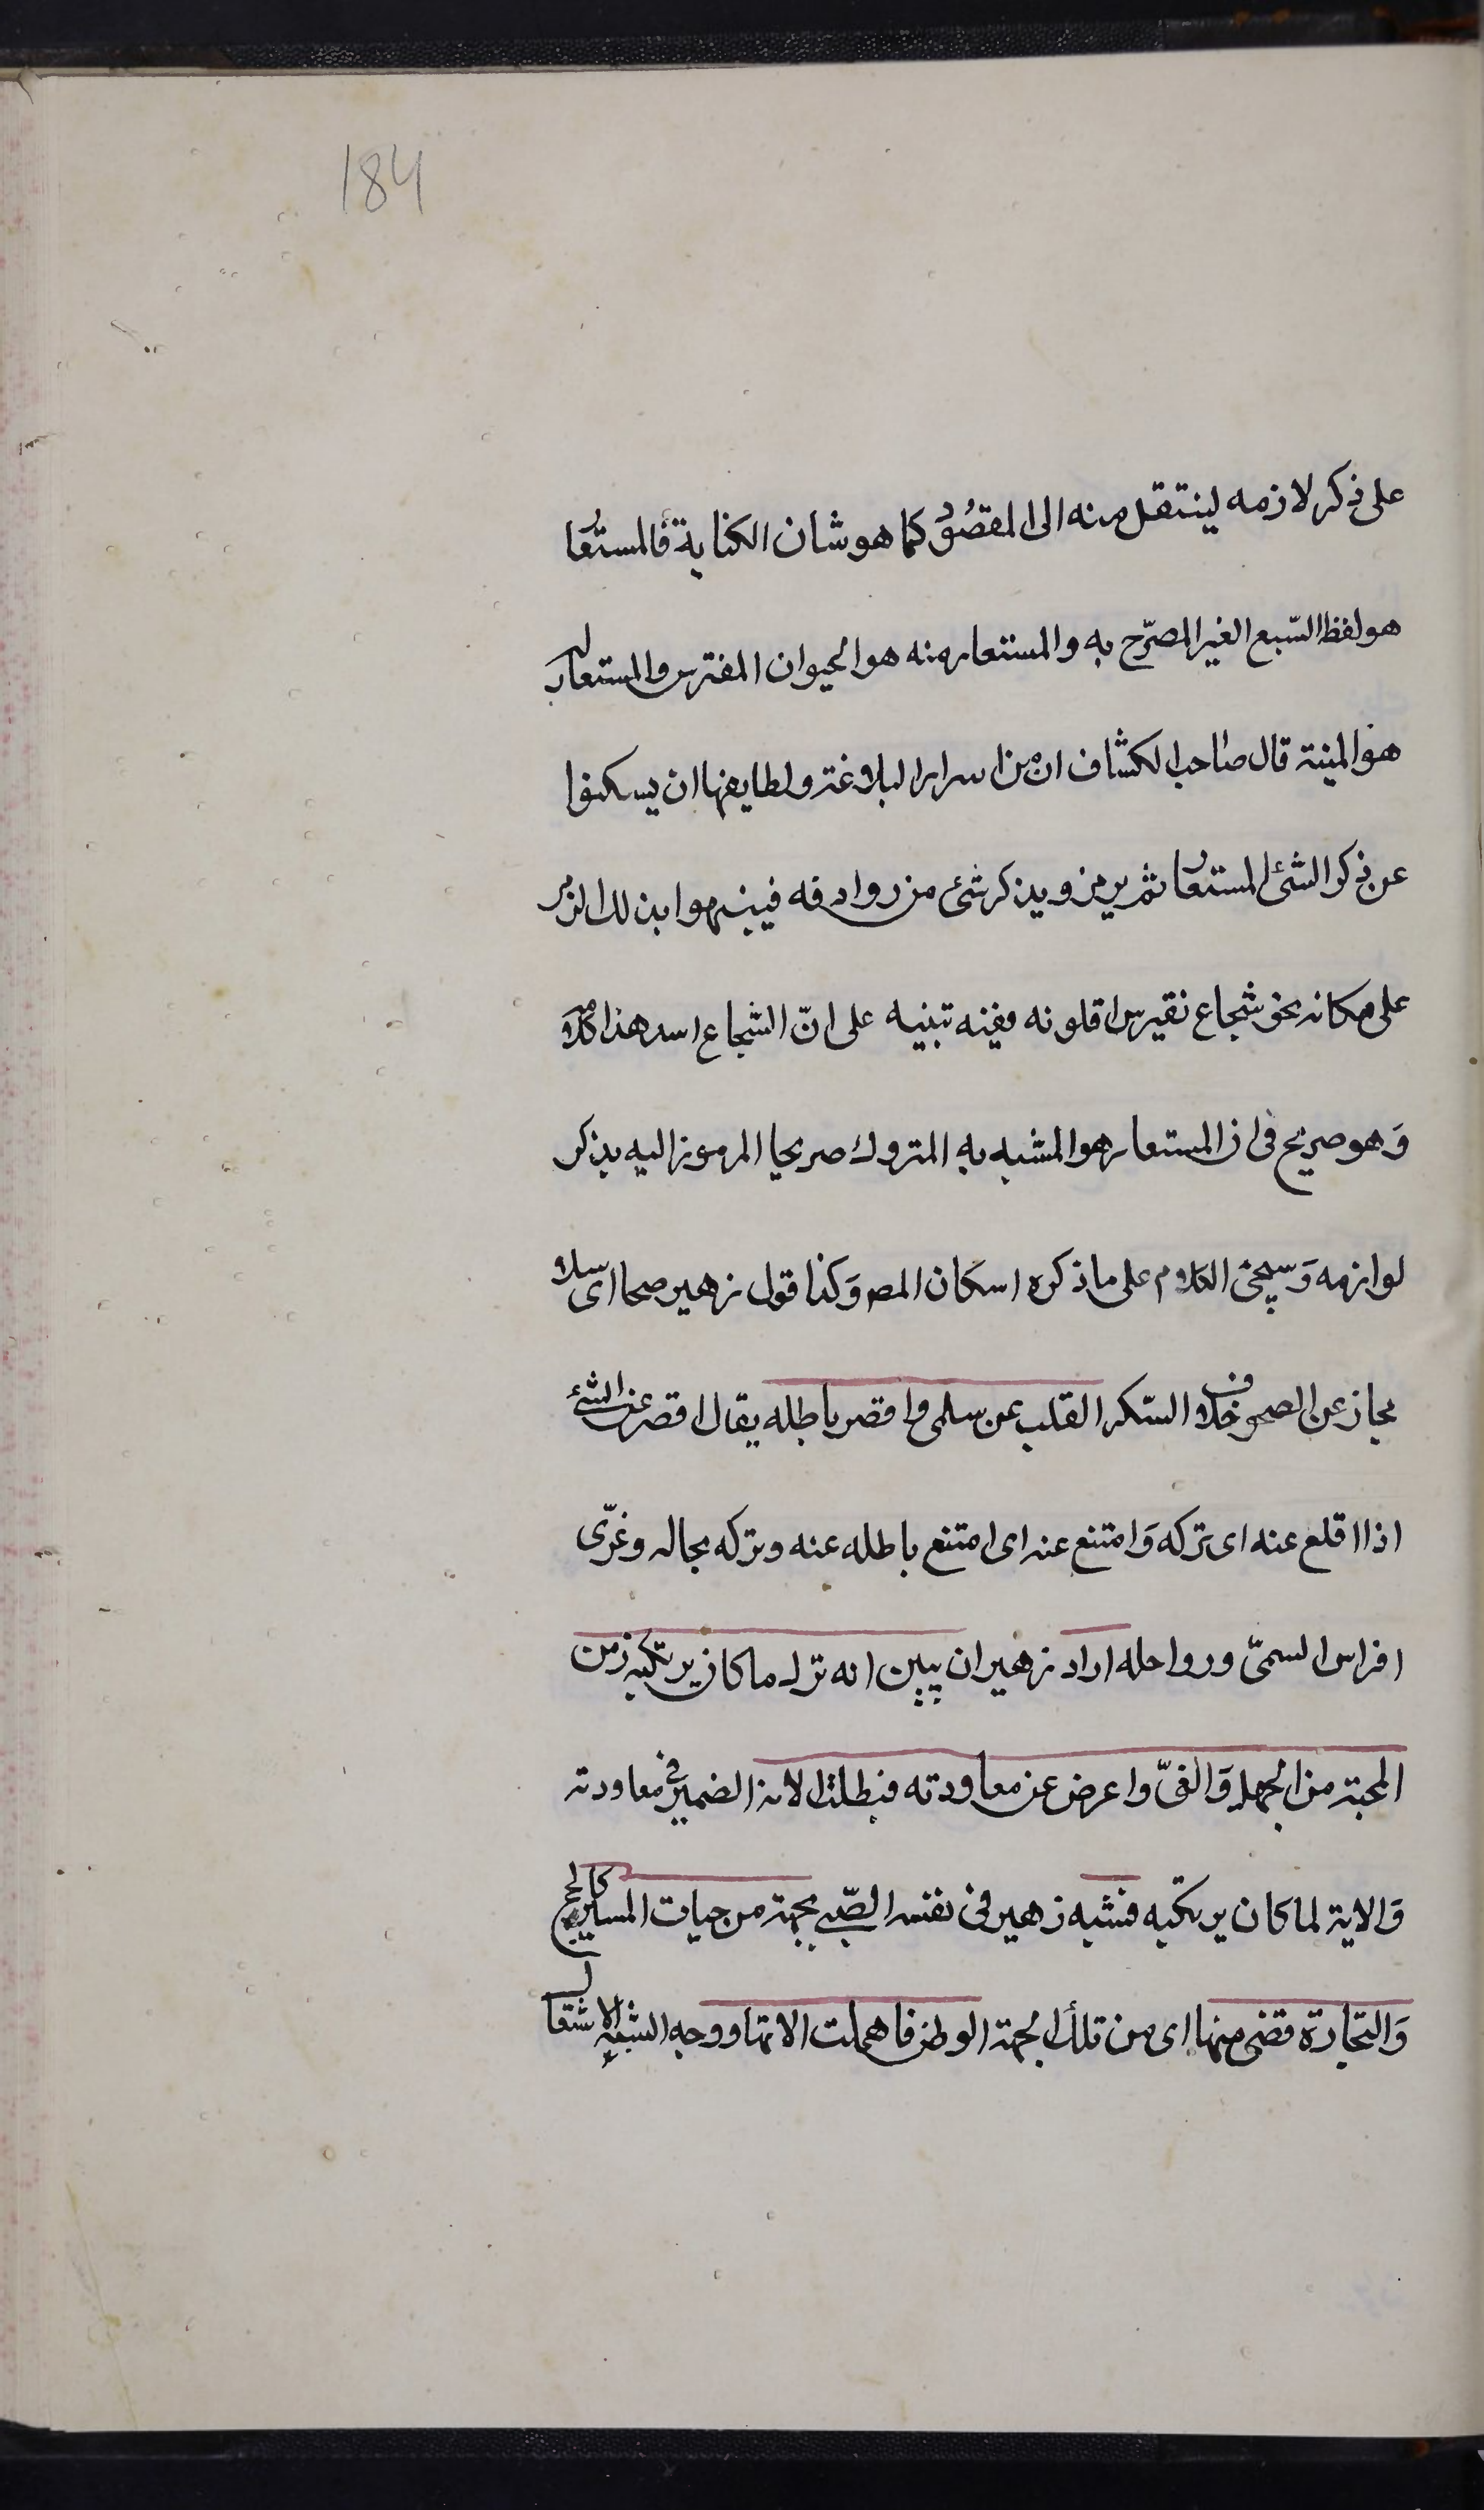 184
على ذكر لازمه لينتقل منه الى المقصود كما هو شان الكناية فالمستعار
هو لفظ السّبع الغير المصرّح به والمستعار منه هو الحيوان المفترس والمستعار له
هو المنية قال صاحب الكشاف ان من اسرار البلاغة ولطايفها ان يسكنوا
عن ذكر الشئ المستعار ثم يرمز ويذكر شئ من روادفه فينبهوا بذلك الرمز
على مكانه نحو شجاع نفيرس اقلونه ففيه تنبيه على انّ الشجاع اسد هذا كلامه
وَهو صريح فى ان المستعار هو المشبه به المتروك صريحا المرموز اليه بذكر
لوازمه وَسيجئ الكلام على ما ذكره اسكان المص وَكذا قول زهير صحا اى سلا
مجاز عن الصحو خلاف السّكر القلب عن سلمى واقصر باطله يقال اقصر عن الشئ
اذا اقلع عنه اى تركه وَامتنع عنه اى امتنع باطله عنه وتركه بحاله وعرّى
افراس السمىّ ورواحله اراد زهير ان يبين انه ترك ما كان يرتكبه زمن
المحبة من الجهل وَالغىّ واعرض عن معاودته فبطلت الاته الضمير فى معاودته
وَالاية لما كان يرتكبه فشبه زهير فى نفسه الصّبى بجهة من جهات المسير كالحج
وَالتجارة قضى منها اى من تلك الجهة الوطر فاهملت الاتها ووجه الشبه الاشتغال